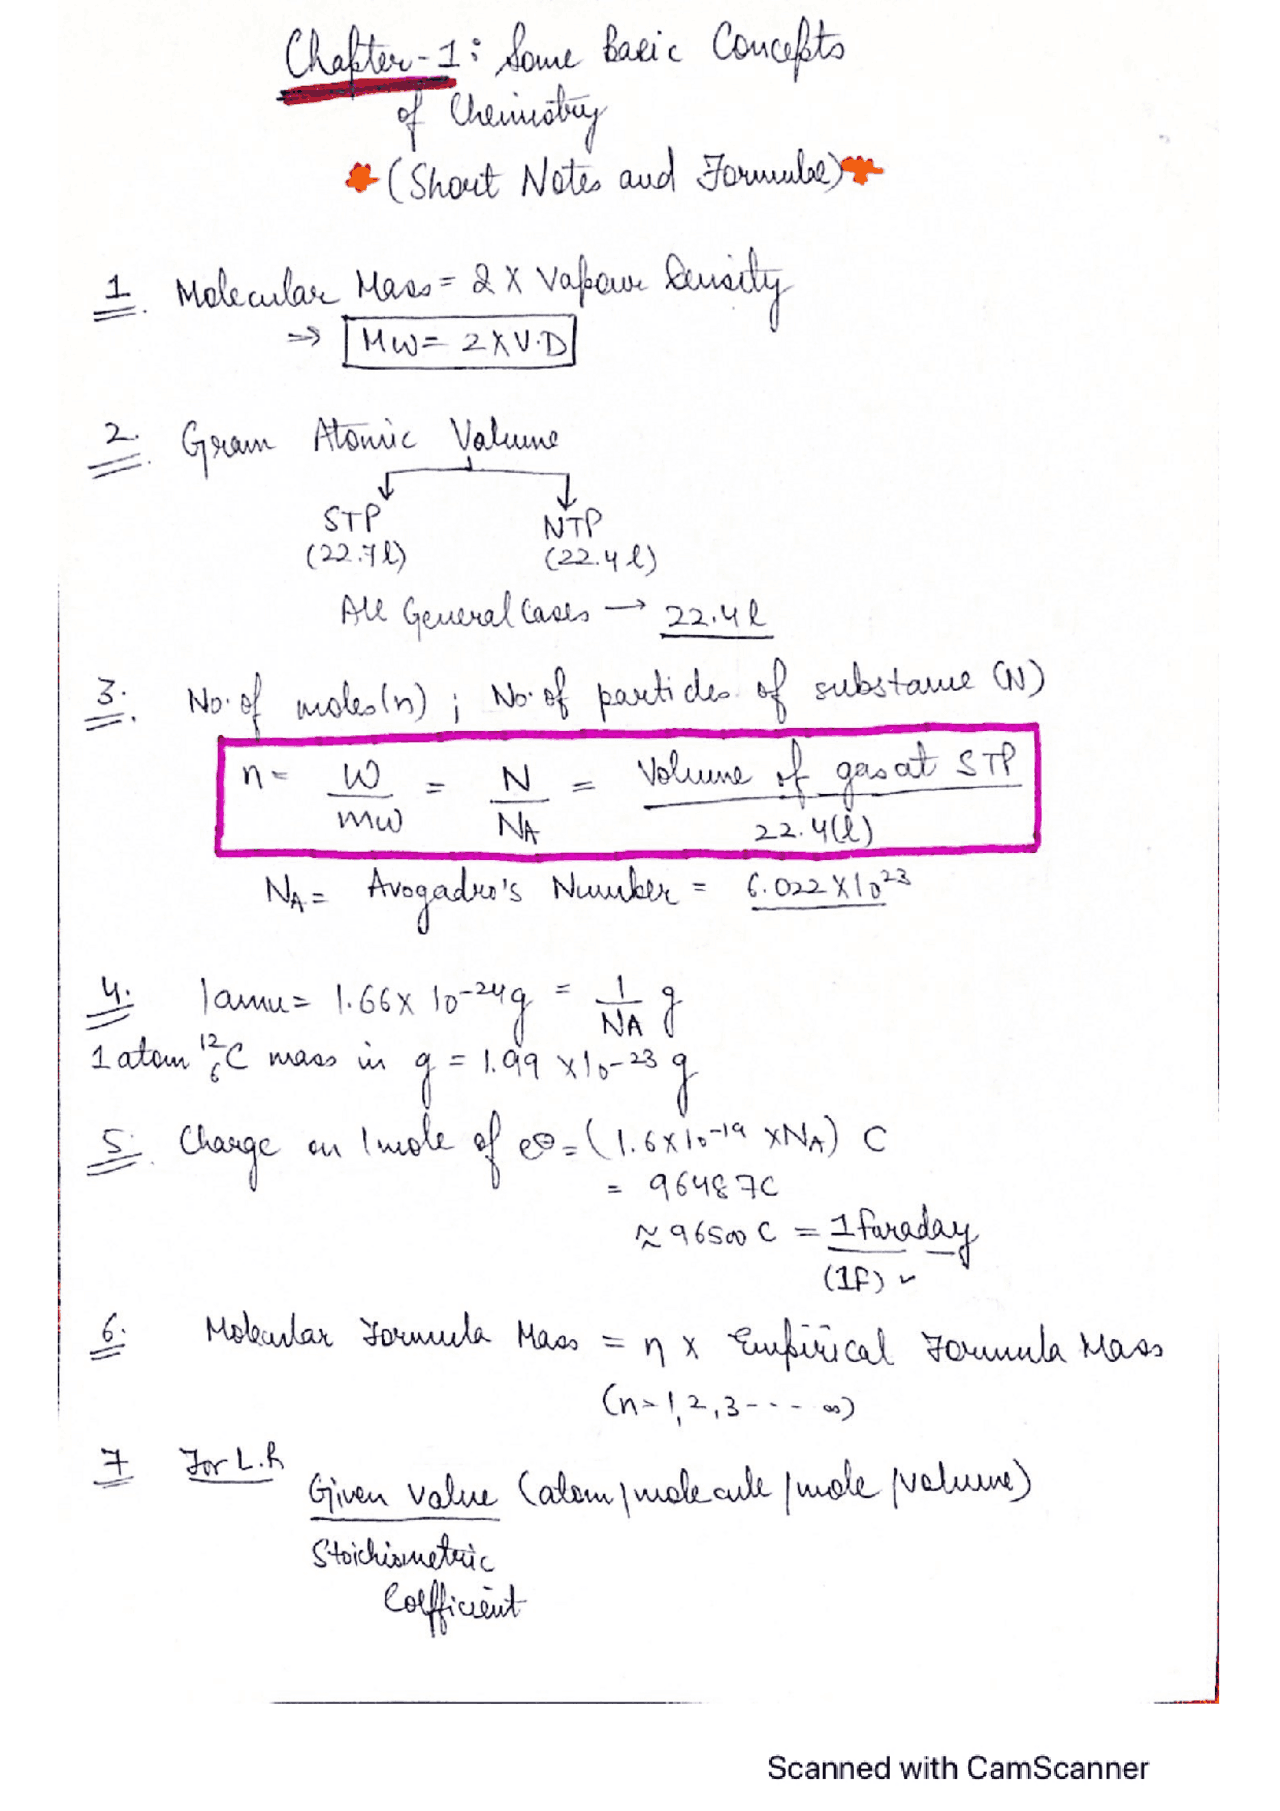 Chapter-1: Some Basic Concepts
of Chemistry
(Short Notes and Formulae)
1. Molecular Mass = 2 X Vapour Density
⇒ MW = 2 X V.D
2. Gram Atomic Volume
STP NTP
(22.7l) (22.4l)
All General Cases → 22.4l
3. No. of moles(n) ; No. of particles of substance (N)
n = W/mw = N/NA = Volume of gas at STP/22.4(l)
NA = Avogadro's Number = 6.022 X 10²³
4. 1amu = 1.66 x 10⁻²⁴g = 1/NA g
1 atom ¹²₆C mass in g = 1.99 x 10⁻²³ g
5. Charge on 1mole of e⊖ = (1.6 x 10⁻¹⁹ x NA) C
= 96487C
≈ 96500 C = 1 faraday
(1F)
6. Molecular Formula Mass = n x Empirical Formula Mass
(n = 1, 2, 3 - - - - ∞)
7 For L.R
Given value (atom/molecule/mole/volume)
Stoichiometric
Coefficient
Scanned with CamScanner